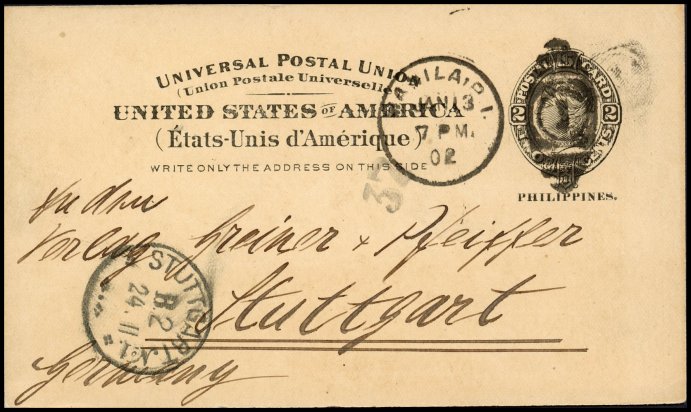 UNIVERSAL POSTAL UNION
(Union Postale Universelle)
UNITED STATES OF AMERICA
(États-Unis d'Amérique)
WRITE ONLY THE ADDRESS ON THIS SIDE
MANILA, P. I.
JAN 13
7 PM.
02
POSTAL CARD
2 2
PHILIPPINES.
An den
Verlag Greiner & Pfeiffer
Stuttgart
Germany
STUTTGART. No 1.
B2
24. II